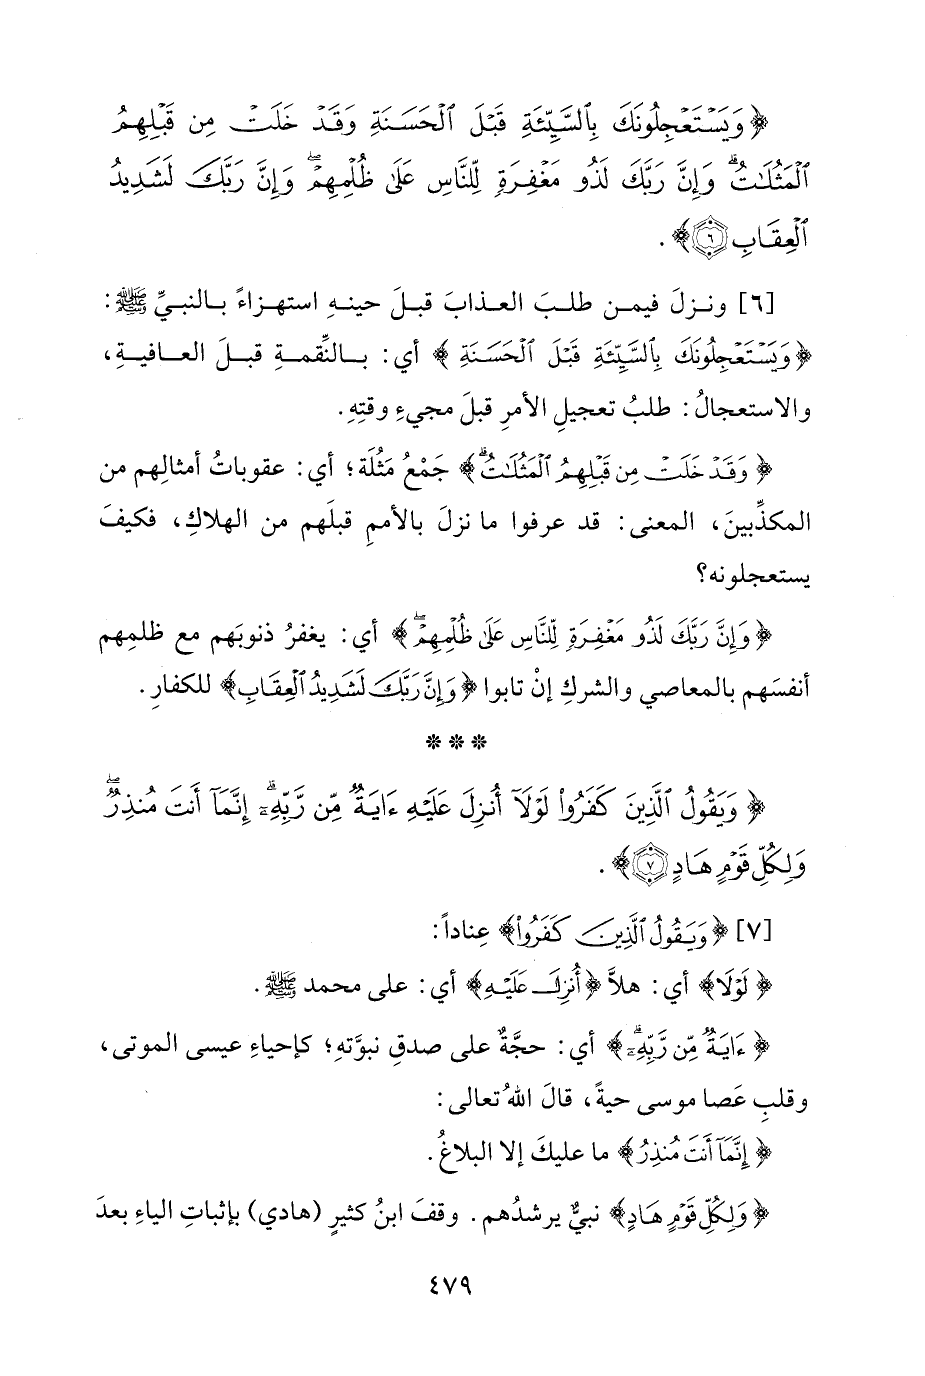 ﴿وَيَسْتَعْجِلُونَكَ بِٱلسَّيِّئَةِ قَبْلَ ٱلْحَسَنَةِ وَقَدْ خَلَتْ مِن قَبْلِهِمُ
ٱلْمَثُلَٰتُ ۗ وَإِنَّ رَبَّكَ لَذُو مَغْفِرَةٍ لِّلنَّاسِ عَلَىٰ ظُلْمِهِمْ ۖ وَإِنَّ رَبَّكَ لَشَدِيدُ
ٱلْعِقَابِ ٦﴾.
[٦] ونـزلَ فيمـن طلـبَ العـذابَ قبـلَ حينـهِ استهـزاءً بـالنبـيِّ ﷺ:
﴿وَيَسْتَعْجِلُونَكَ بِٱلسَّيِّئَةِ قَبْلَ ٱلْحَسَنَةِ﴾ أي: بـالنِّقمـةِ قبـلَ العـافيـةِ،
والاستعجالُ: طلبُ تعجيلِ الأمرِ قبلَ مجيءِ وقتِهِ.
﴿وَقَدْ خَلَتْ مِن قَبْلِهِمُ ٱلْمَثُلَٰتُ ۗ﴾ جَمْعُ مَثُلَة؛ أي: عقوباتُ أمثالِهم من
المكذِّبينَ، المعنى: قد عرفوا ما نزلَ بالأممِ قبلَهم من الهلاكِ، فكيفَ
يستعجلونه؟
﴿وَإِنَّ رَبَّكَ لَذُو مَغْفِرَةٍ لِّلنَّاسِ عَلَىٰ ظُلْمِهِمْ ۖ﴾ أي: يغفرُ ذنوبَهم مع ظلمِهم
أنفسَهم بالمعاصي والشركِ إنْ تابوا ﴿وَإِنَّ رَبَّكَ لَشَدِيدُ ٱلْعِقَابِ﴾ للكفارِ.
* * *
﴿وَيَقُولُ ٱلَّذِينَ كَفَرُوا۟ لَوْلَآ أُنزِلَ عَلَيْهِ ءَايَةٌ مِّن رَّبِّهِۦٓ ۗ إِنَّمَآ أَنتَ مُنذِرٌ ۖ
وَلِكُلِّ قَوْمٍ هَادٍ ٧﴾.
[٧] ﴿وَيَقُولُ ٱلَّذِينَ كَفَرُوا۟﴾ عِناداً:
﴿لَوْلَا﴾ أي: هلاَّ ﴿أُنزِلَ عَلَيْهِ﴾ أي: على محمد ﷺ.
﴿ءَايَةٌ مِّن رَّبِّهِۦٓ ۗ﴾ أي: حجَّةٌ على صدقِ نبوَّتهِ؛ كإحياءِ عيسى الموتى،
وقلبِ عَصا موسى حيةً، قالَ اللهُ تعالى:
﴿إِنَّمَآ أَنتَ مُنذِرٌ﴾ ما عليكَ إلا البلاغُ.
﴿وَلِكُلِّ قَوْمٍ هَادٍ﴾ نبيٌّ يرشدُهم. وقفَ ابنُ كثيرٍ (هادي) بإثباتِ الياءِ بعدَ
٤٧٩